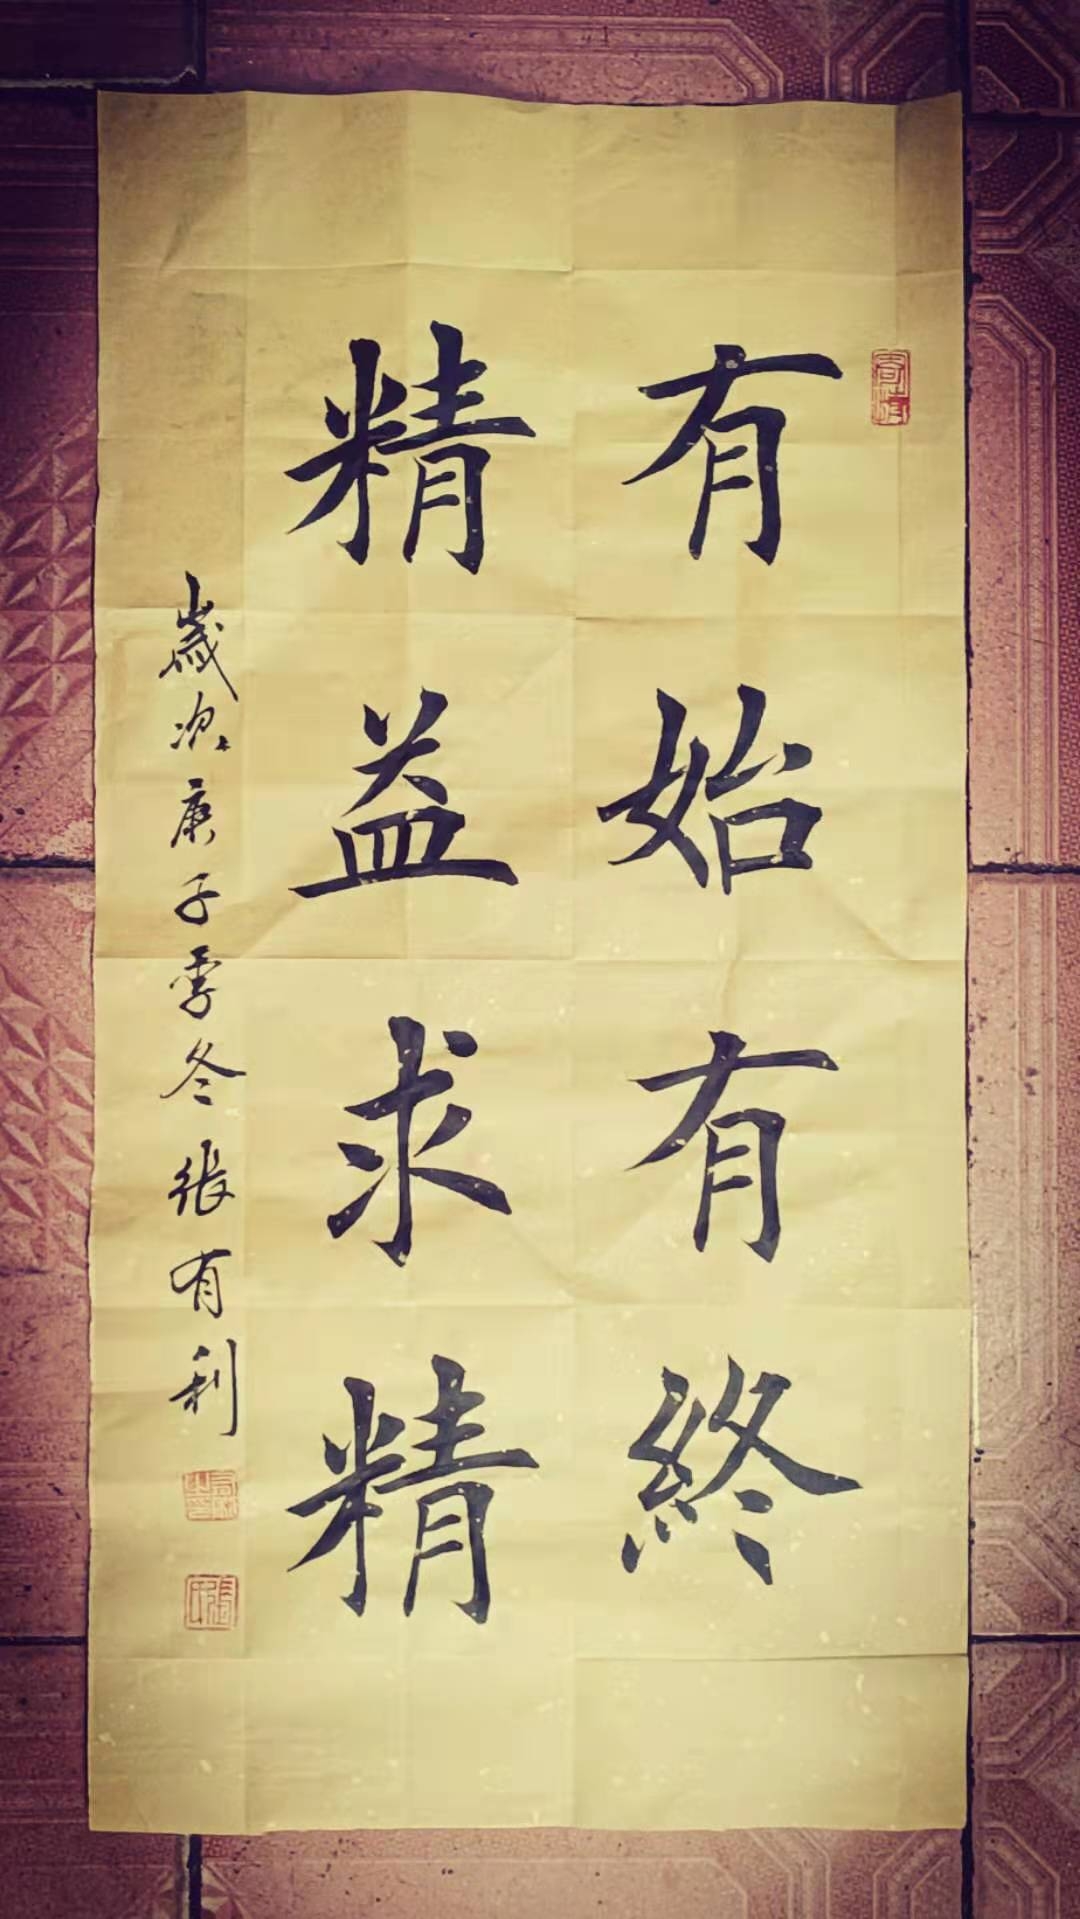 有始有終
精益求精
歲次庚子季冬張有利